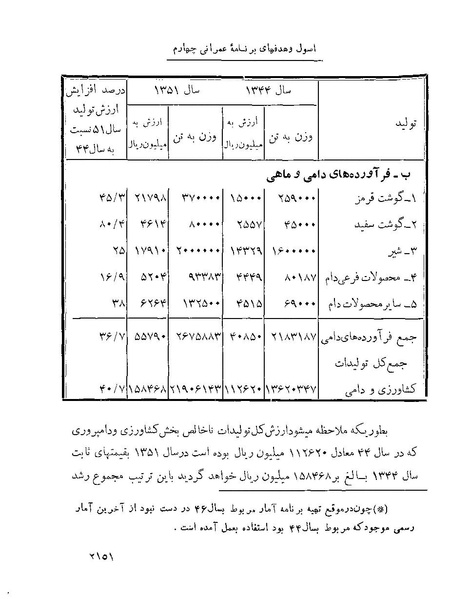 اصول وهدفهای برنامهٔ عمرانی چهارم
تولید سال ۱۳۴۴ سال ۱۳۵۱ درصد افزایش ارزش تولید سال ۵۱ نسبت به سال ۴۴
وزن به تن ارزش به میلیون ریال وزن به تن ارزش به میلیون ریال
ب ـ فرآورده‌های دامی و ماهی
۱ـ گوشت قرمز ۲۵۹۰۰۰ ۱۵۰۰۰ ۳۷۰۰۰۰ ۲۱۷۹۸ ۴۵/۳
۲ـ گوشت سفید ۴۵۰۰۰ ۲۵۵۷ ۸۰۰۰۰ ۴۶۱۴ ۸۰/۴
۳ـ شیر ۱۶۰۰۰۰۰ ۱۴۳۲۹ ۲۰۰۰۰۰۰ ۱۷۹۱۰ ۲۵
۴ـ محصولات فرعی دام ۸۰۱۸۷ ۴۴۴۹ ۹۳۳۸۳ ۵۲۰۴ ۱۶/۹
۵ـ سایر محصولات دام ۶۹۰۰۰ ۴۵۱۵ ۱۳۲۵۰۰ ۶۲۶۴ ۳۸
جمع فرآورده‌های دامی ۲۱۸۳۱۸۷ ۴۰۸۵۰ ۲۶۷۵۸۸۳ ۵۵۷۹۰ ۳۶/۷
جمع کل تولیدات
کشاورزی و دامی ۱۳۶۲۰۳۴۷ ۱۱۲۶۲۰ ۲۱۹۰۶۱۴۳ ۱۵۸۴۶۸ ۴۰/۷
بطوریکه ملاحظه میشود ارزش کل تولیدات ناخالص بخش کشاورزی و دامپروری
که در سال ۴۴ معادل ۱۱۲۶۲۰ میلیون ریال بوده است درسال ۱۳۵۱ بقیمتهای ثابت
سال ۱۳۴۴ بالغ بر ۱۵۸۴۶۸ میلیون ریال خواهد گردید باین ترتیب مجموع رشد
(*) چون درموقع تهیه برنامه آمار مربوط بسال ۴۶ در دست نبود از آخرین آمار
رسمی موجود که مربوط بسال ۴۴ بود استفاده بعمل آمده است .
۲۱۵۱